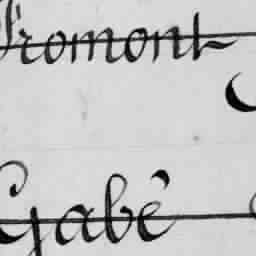 Fromont
Gabé